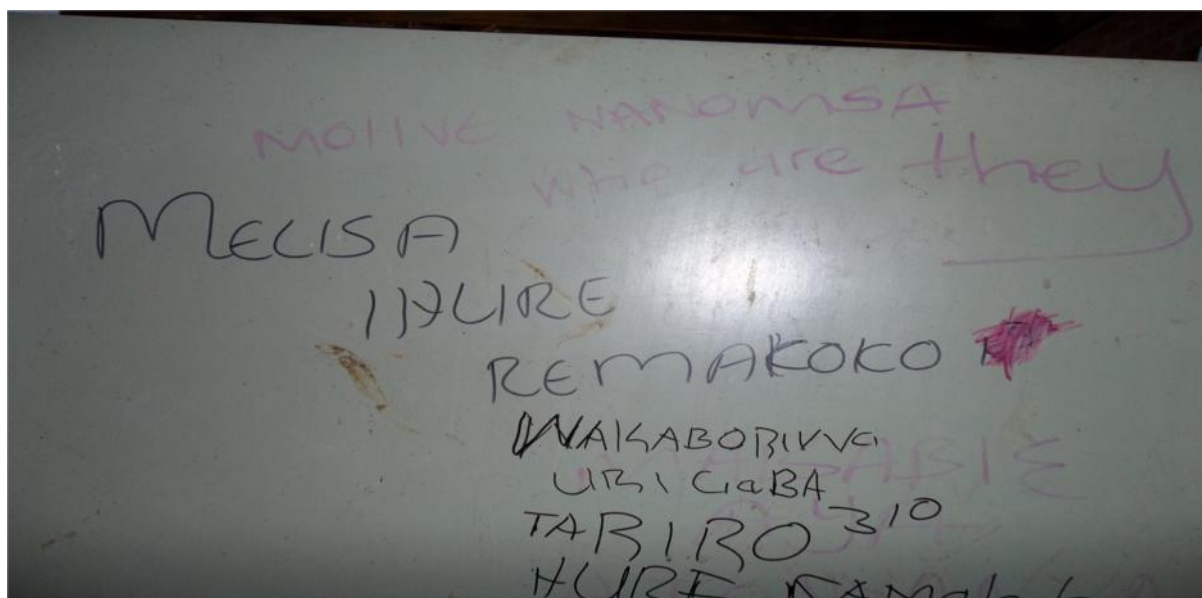 MOTIVE NANOMSA
who are they
MELISA
IHURE
REMAKOKO
WAKABORIWA
URI GaBA
TARIRO 310
HURE